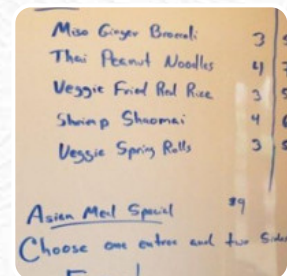 Miso Ginger Broccoli 3
Thai Peanut Noodles 4 7
Veggie Fried Red Rice 3 5
Shrimp Shaomai 4 6
Veggie Spring Rolls 3 5
Asian Meal Special $9
Choose one entree and two Sides